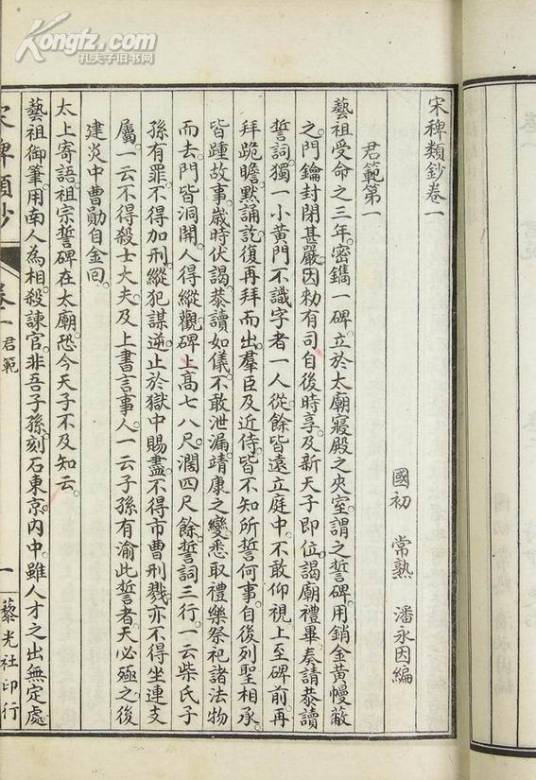 Kongfz.com
孔夫子旧书网
宋稗類鈔卷一
國初　常熟　潘永因編
君範第一
藝祖受命之三年。密鐫一碑立於太廟寢殿之夾室。謂之誓碑。用銷金黃幔蔽
之。門鑰封閉甚嚴。因勅有司自後時享及新天子即位。謁廟禮畢奏請恭讀
誓詞。獨一小黃門不識字者一人從。餘皆遠立庭中。不敢仰視。上至碑前再
拜跪瞻默誦訖復再拜而出。羣臣及近侍。皆不知所誓何事。自後列聖相承。
皆踵故事。歲時伏謁恭讀如儀。不敢泄漏。靖康之變。悉取禮樂祭祀諸法物
而去。門皆洞開。人得縱觀。碑上高七八尺。濶四尺餘。誓詞三行。一云柴氏子
孫有罪。不得加刑。縱犯謀逆。止於獄中賜盡。不得市曹刑戮。亦不得坐連支
屬。一云不得殺士大夫。及上書言事人。一云子孫有渝此誓者。天必殛之。後
建炎中曹勛自金回。
太上寄語。祖宗誓碑在太廟。恐今天子不及知云。
藝祖御筆。用南人為相。殺諫官。非吾子孫。刻石東京內中。雖人才之出無定處
宋稗類鈔　卷一　君範　一　藜光社印行